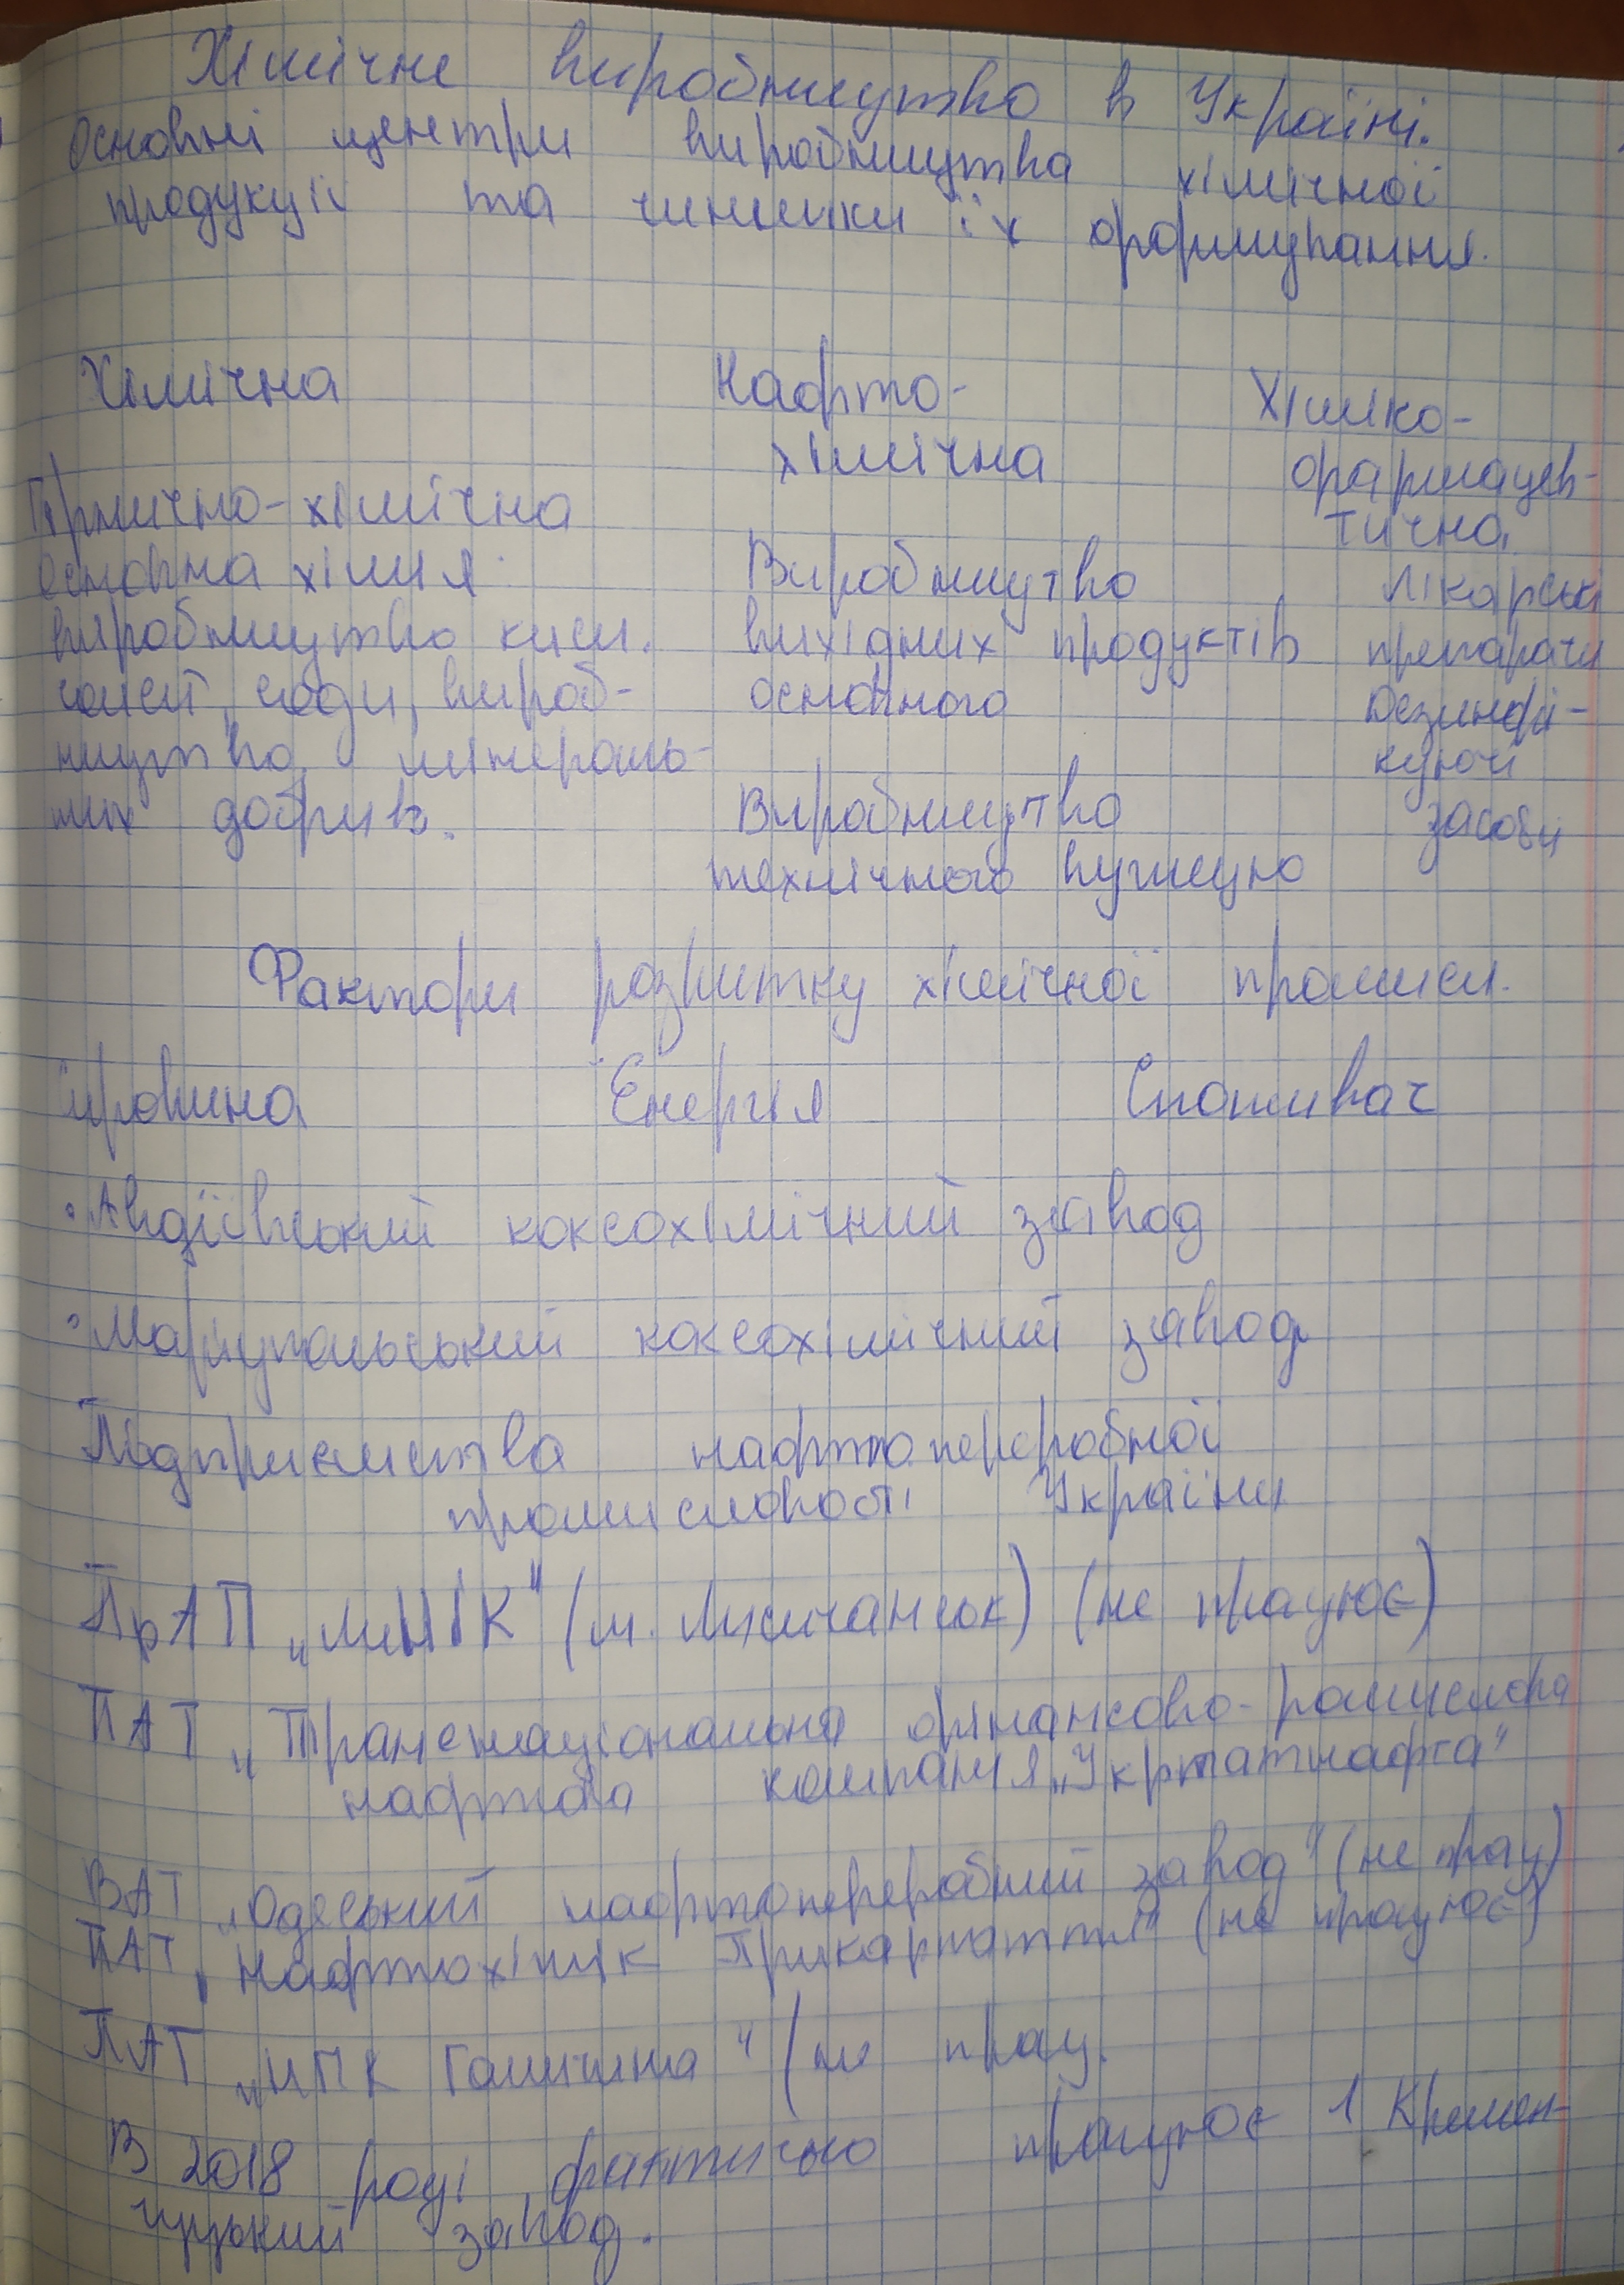 Хімічне виробництво в Україні.
Основні центри виробництва хімічної
продукції та чинники їх формування.
Хімічна
Нафто-
хімічна
Хіміко-
фармацев-
тична
Гірничо-хімічна
основна хімія
виробництво кисл.
соди, вироб-
ництво мінераль-
них добрив.
Виробництво
вихідних продуктів
основного
Виробництво
технічного вуглецю
Лікарські
препарати
Дезинфі-
куючі
засоби
Фактори розвитку хімічної промисл.
Сировина Енергія Споживач
• Авдіївський коксохімічний завод
• Маріупольський коксохімічний завод
Підприємства нафтопереробної
промисловості України
ПрАП „ЛиНІК" (м. Лисичанськ) (не працює)
ПАТ „Транснаціональна фінансово-ромислова
нафтова компанія „Укртатнафта"
ВАТ „Одеський нафтопереробний завод" (не прац)
ПАТ „Нафтохімік Прикарпаття" (не працює)
ПАТ „НПК Галичина" (не прац.
В 2018 році фактично працює 1 Кремен-
чуцький завод.